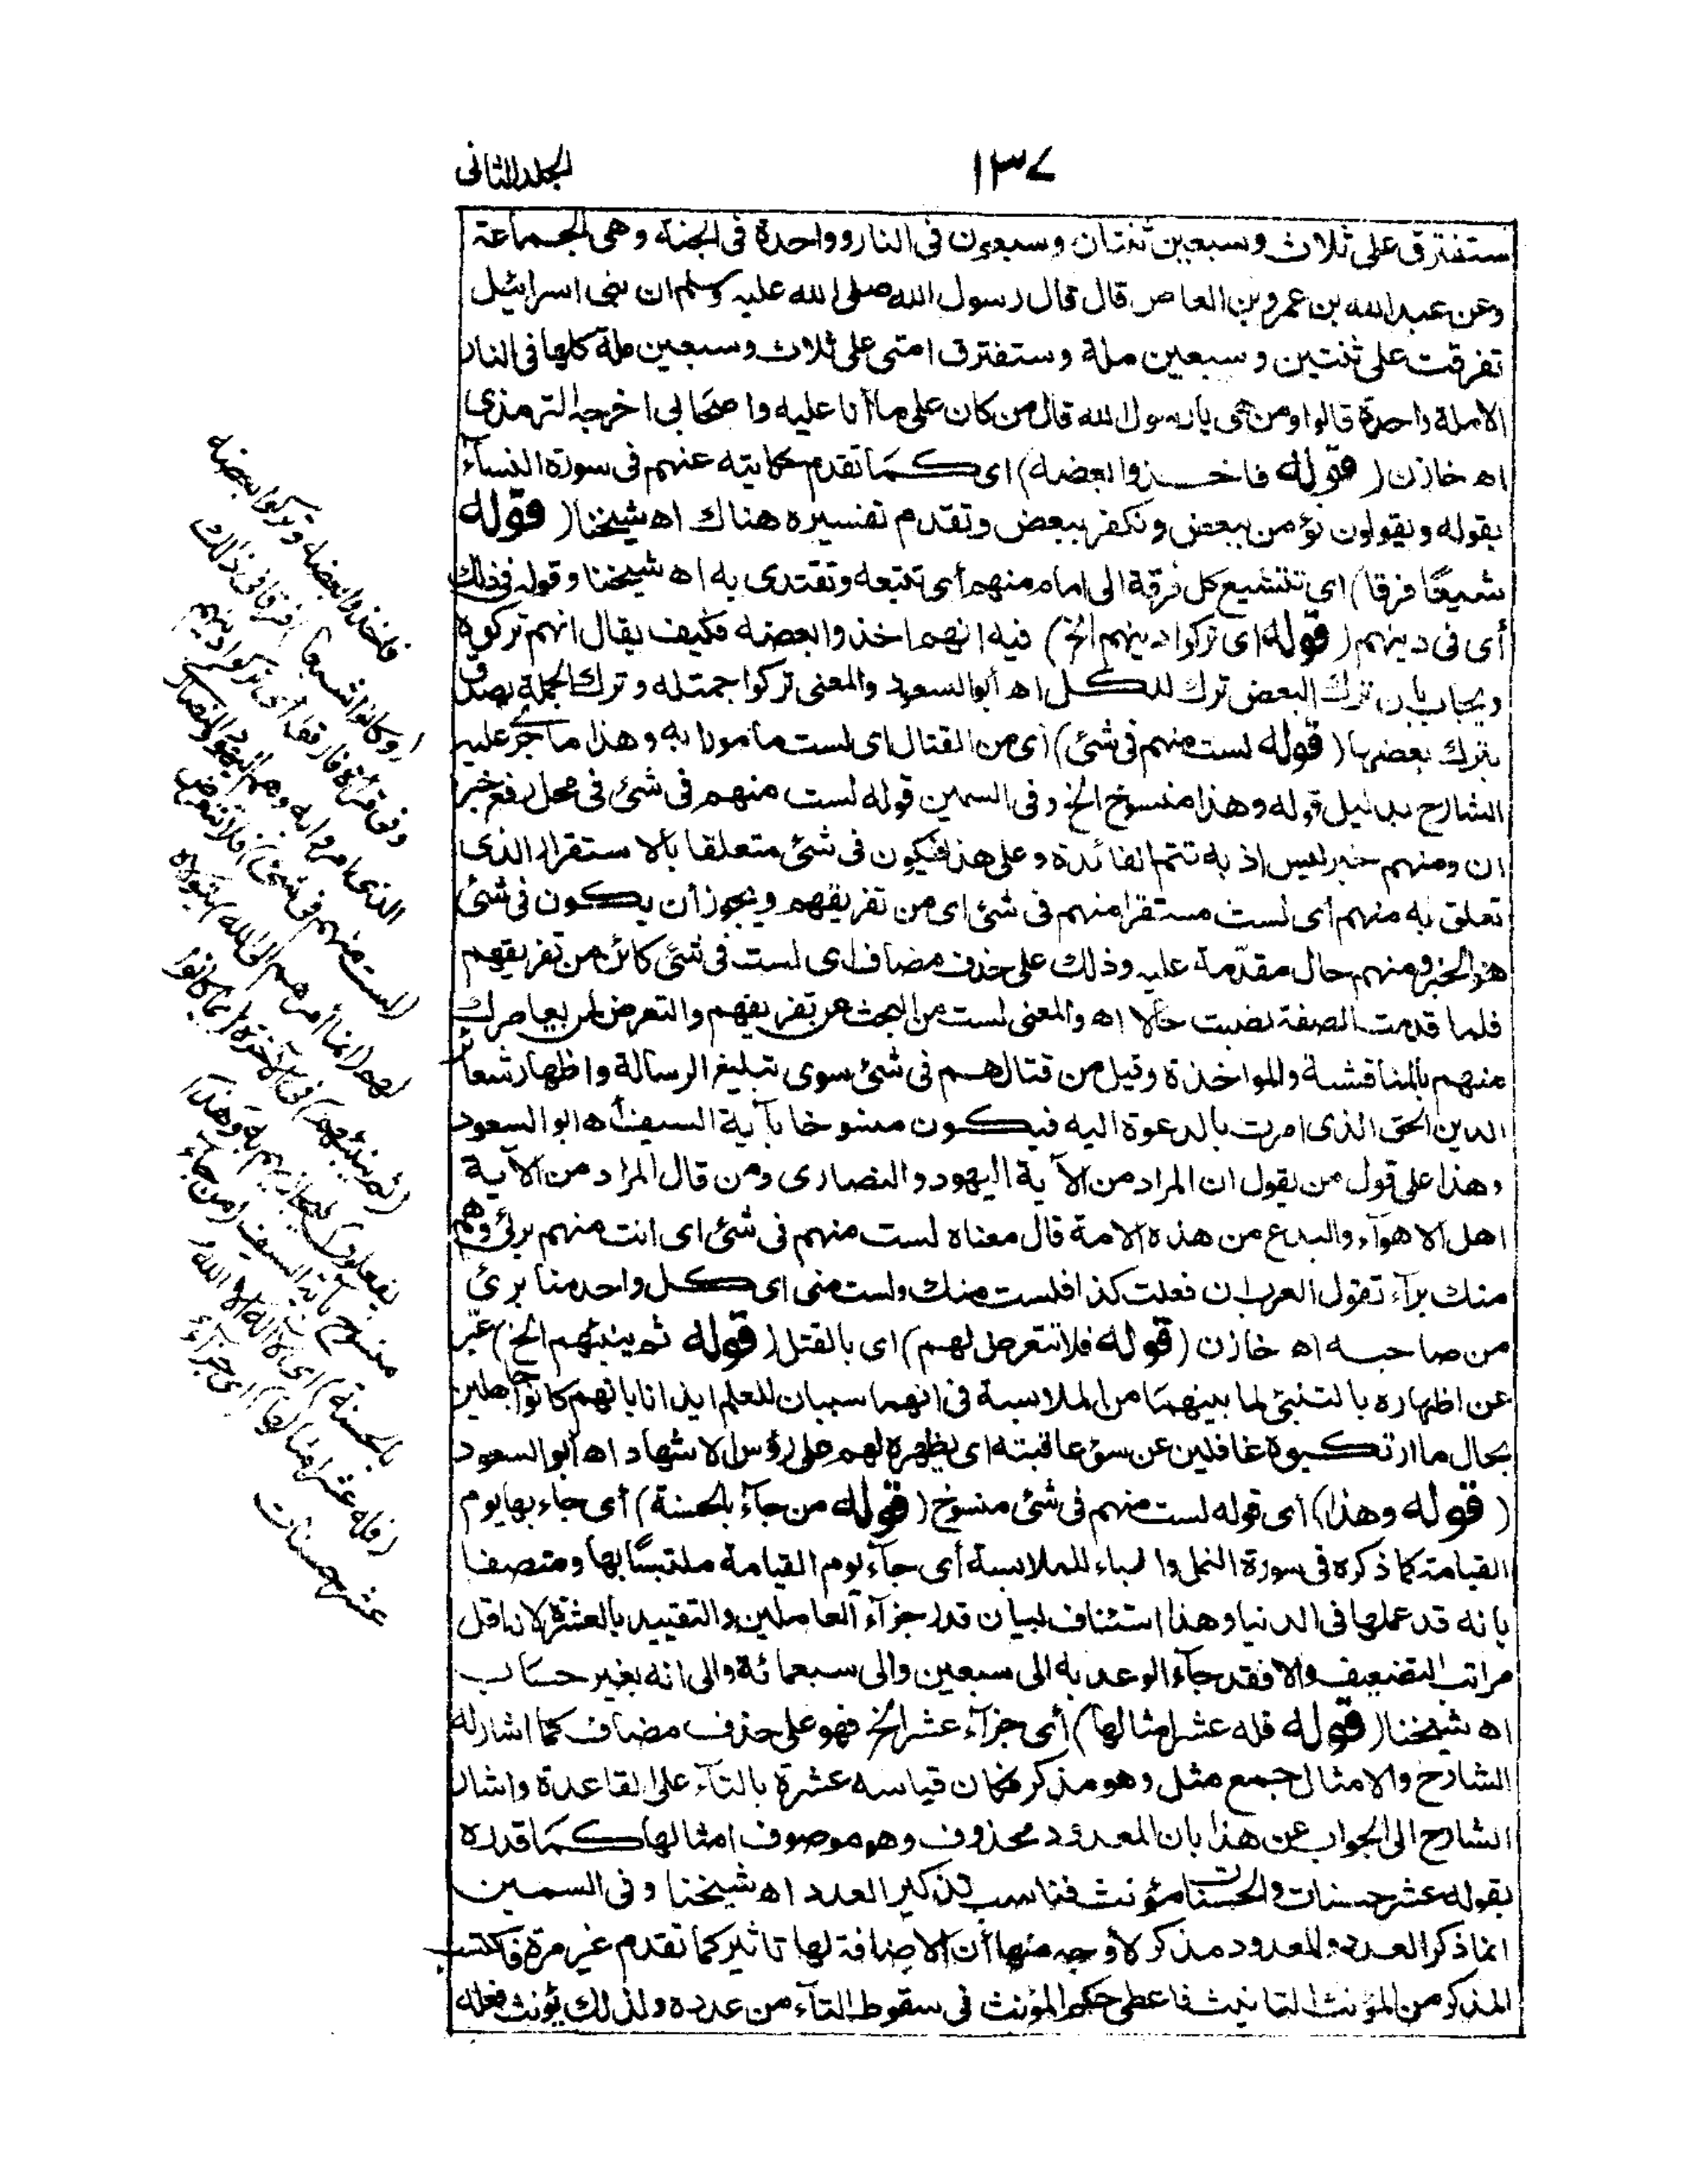 ١٣٧
المجلد الثانی
ستفترق علی ثلاث وسبعین ثنتان وسبعون فی النار وواحدة فی الجنة وهی الجماعة
وعن عبد الله بن عمرو بن العاص قال قال رسول الله صلی الله علیه وسلم ان بنی اسرائیل
تفرقت علی ثنتین وسبعین ملة وستفترق امتی علی ثلاث وسبعین ملة کلها فی النار
الاملة واحدة قالوا ومن هی یا رسول الله قال من کان علی ما أنا علیه واصحابی اخرجه الترمذی
اه خازن (قوله فاخذوا بعضه) ای کما تقدم حکایته عنهم فی سورة النسآء
بقوله ویقولون نؤمن ببعض ونکفر ببعض وتقدم تفسیره هناك اه شیخنا (قوله
شیعًا فرقا) ای تتشیع کل فرقة الی امام منهم أی تتبعه وتقتدی به اه شیخنا وقوله فی ذلك
أی فی دینهم (قوله ای ترکوا دینهم الخ) فیه انهم اخذوا بعضه فکیف یقال انهم ترکوه
ویجاب بان ترك البعض ترك للکل اه أبو السعود والمعنی ترکوا جملته وترك الجملة یصدق
بترك بعضها (قوله لست منهم فی شئ) أی من القتال ای لست مأمورا به وهذا ما جری علیه
الشارح بدلیل قوله وهذا منسوخ الخ وفی السمین قوله لست منهم فی شئ فی محل رفع خبر
ان ومنهم خبر لیس اذ به تتم الفائدة وعلی هذا فیکون فی شئ متعلقا بالاستقرار الذی
تعلق به منهم أی لست مستقرا منهم فی شئ ای من تفریقهم ویجوز أن یکون فی شئ
هو الخبر ومنهم حال مقدّمة علیه وذلك علی حذف مضاف ای لست فی شئ کائن من تفریقهم
فلما قدمت الصفة نصبت حالا اه والمعنی لست من البحث عن تفریقهم والتعرض لمن یعاصرك
منهم بالمناقشة والمواخذة وقیل من قتالهم فی شئ سوی تبلیغ الرسالة واظهار شعائر
الدین الحق الذی امرت بالدعوة الیه فیکون منسوخا بآیة السیف اه ابو السعود
وهذا علی قول من یقول ان المراد من الآیة الیهود والنصاری ومن قال المراد من الآیة
اهل الاهوآء والبدع من هذه الامة قال معناه لست منهم فی شئ ای انت منهم برئ وهم
منك برآء تقول العرب ان فعلت کذا فلست منك ولست منی ای کل واحد منا برئ
من صاحبه اه خازن (قوله فلا تتعرض لهم) ای بالقتل (قوله ثم ینبئهم الخ) عبّر
عن اظهاره بالتنبئ لما بینهما من الملابسة فی انهما سببان للعلم ایذانا بانهم کانوا جاهلین
بحال ما ارتکبوه غافلین عن سوء عاقبته ای یظهره لهم علی رؤس الاشهاد اه أبو السعود
(قوله وهذا) أی قوله لست منهم فی شئ منسوخ (قوله من جآء بالحسنة) أی جاء بها یوم
القیامة کما ذکره فی سورة النمل والباء للملابسة أی جآء یوم القیامة ملتبسًا بها ومتصفا
بانه قد عملها فی الدنیا وهذا استئناف لبیان قدر جزآء العاملین والتقیید بالعشرة لانه اقل
مراتب التضعیف والا فقد جآء الوعد به الی سبعین والی سبعمائة والی انه بغیر حساب
اه شیخنا (قوله فله عشر امثالها) أی جزآء عشر الخ فهو علی حذف مضاف کما اشار له
الشارح والامثال جمع مثل وهو مذکر فکان قیاسه عشرة بالتآء علی القاعدة واشار
الشارح الی الجواب عن هذا بان المعدود محذوف وهو موصوف امثالها کما قدره
بقوله عشر حسنات والحسنات مؤنث فناسب تذکیر العدد اه شیخنا وفی السمین
انما ذکر العدد والمعدود مذکر لأوجه منها أن الاضافة لها تاثیر کما تقدم غیر مرة فاکتسب
المذکر من المؤنث التانیث فاعطی حکم المؤنث فی سقوط التآء من عدده ولذلك یؤنث فعله
فاخذوا بعضه وترکوا بعضه
(وکانوا شیعا) فرقا فی ذلك
وفی قراءة فارقوا أی ترکوا دینهم
الذی امروا به وهم الیهود والنصاری
(لست منهم فی شئ) فلا تتعرض
لهم (انما أمرهم الی الله) یتولاه
(ثم ینبئهم) فی الآخرة (بما کانوا
یفعلون) فیجازیهم به وهذا
منسوخ بآیة السیف (من جآء
بالحسنة) ای لا اله الا الله
(فله عشر امثالها) ای جزآء
عشر حسنات